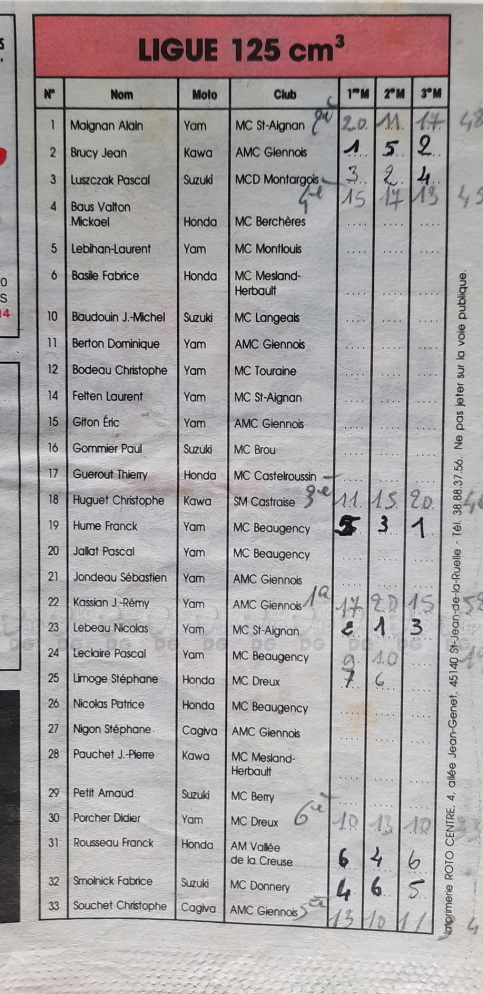 LIGUE 125 cm³
N° Nom Moto Club 1re M 2e M 3e M
1 Maignan Alain Yam MC St-Aignan 2e 20 11 17 48
2 Brucy Jean Kawa AMC Giennois 1 5 2
3 Luszczak Pascal Suzuki MCD Montargois 3 2 4
4e 15 17 13 45
4 Baus Valton
Mickael Honda MC Berchères
5 Lebihan-Laurent Yam MC Montlouis
6 Basile Fabrice Honda MC Mesland-
Herbault
10 Baudouin J.-Michel Suzuki MC Langeais
11 Berton Dominique Yam AMC Giennois
12 Bodeau Christophe Yam MC Touraine
14 Felten Laurent Yam MC St-Aignan
15 Giton Éric Yam AMC Giennois
16 Gommier Paul Suzuki MC Brou
17 Guerout Thierry Honda MC Castelroussin
18 Huguet Christophe Kawa SM Castraise 3e 11 15 20
19 Hume Franck Yam MC Beaugency 5 3 1
20 Jallat Pascal Yam MC Beaugency
21 Jondeau Sébastien Yam AMC Giennois
22 Kassian J.-Rémy Yam AMC Giennois 17 20 15
23 Lebeau Nicolas Yam MC St-Aignan 2 1 3
24 Leclaire Pascal Yam MC Beaugency 9 10
25 Limoge Stéphane Honda MC Dreux 7 6
26 Nicolas Patrice Honda MC Beaugency
27 Nigon Stéphane Cagiva AMC Giennois
28 Pauchet J.-Pierre Kawa MC Mesland-
Herbault
29 Petit Arnaud Suzuki MC Berry
30 Porcher Didier Yam MC Dreux 6e 10 13 10
31 Rousseau Franck Honda AM Vallée
de la Creuse 6 4 6
32 Smolnick Fabrice Suzuki MC Donnery 4 6 5
33 Souchet Christophe Cagiva AMC Giennois 5e 13 10 11
Imprimerie ROTO CENTRE, 4, allée Jean-Genet, 45140 St-Jean-de-la-Ruelle - Tél. 38.88.37.56. Ne pas jeter sur la voie publique.